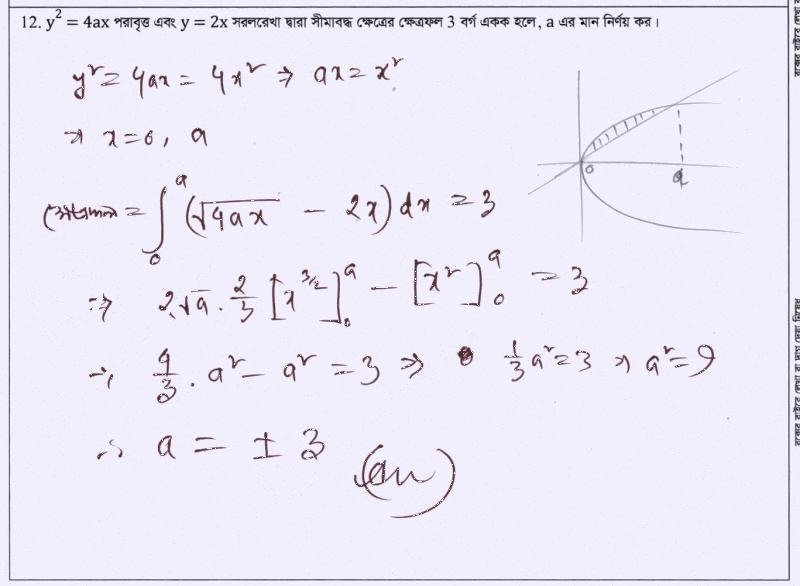 12. y² = 4ax পরাবৃত্ত এবং y = 2x সরলরেখা দ্বারা সীমাবদ্ধ ক্ষেত্রের ক্ষেত্রফল 3 বর্গ একক হলে, a এর মান নির্ণয় কর।
y² = 4ax = 4x² ⇒ ax = x²
⇒ x = 0, a
ক্ষেত্রফল = ∫₀ᵃ (√4ax − 2x) dx = 3
⇒ 2√a · 2/3 [x^(3/2)]₀ᵃ − [x²]₀ᵃ = 3
⇒ 4/3 · a² − a² = 3 ⇒ 1/3 a² = 3 ⇒ a² = 9
∴ a = ± 3 (Ans)
0
a